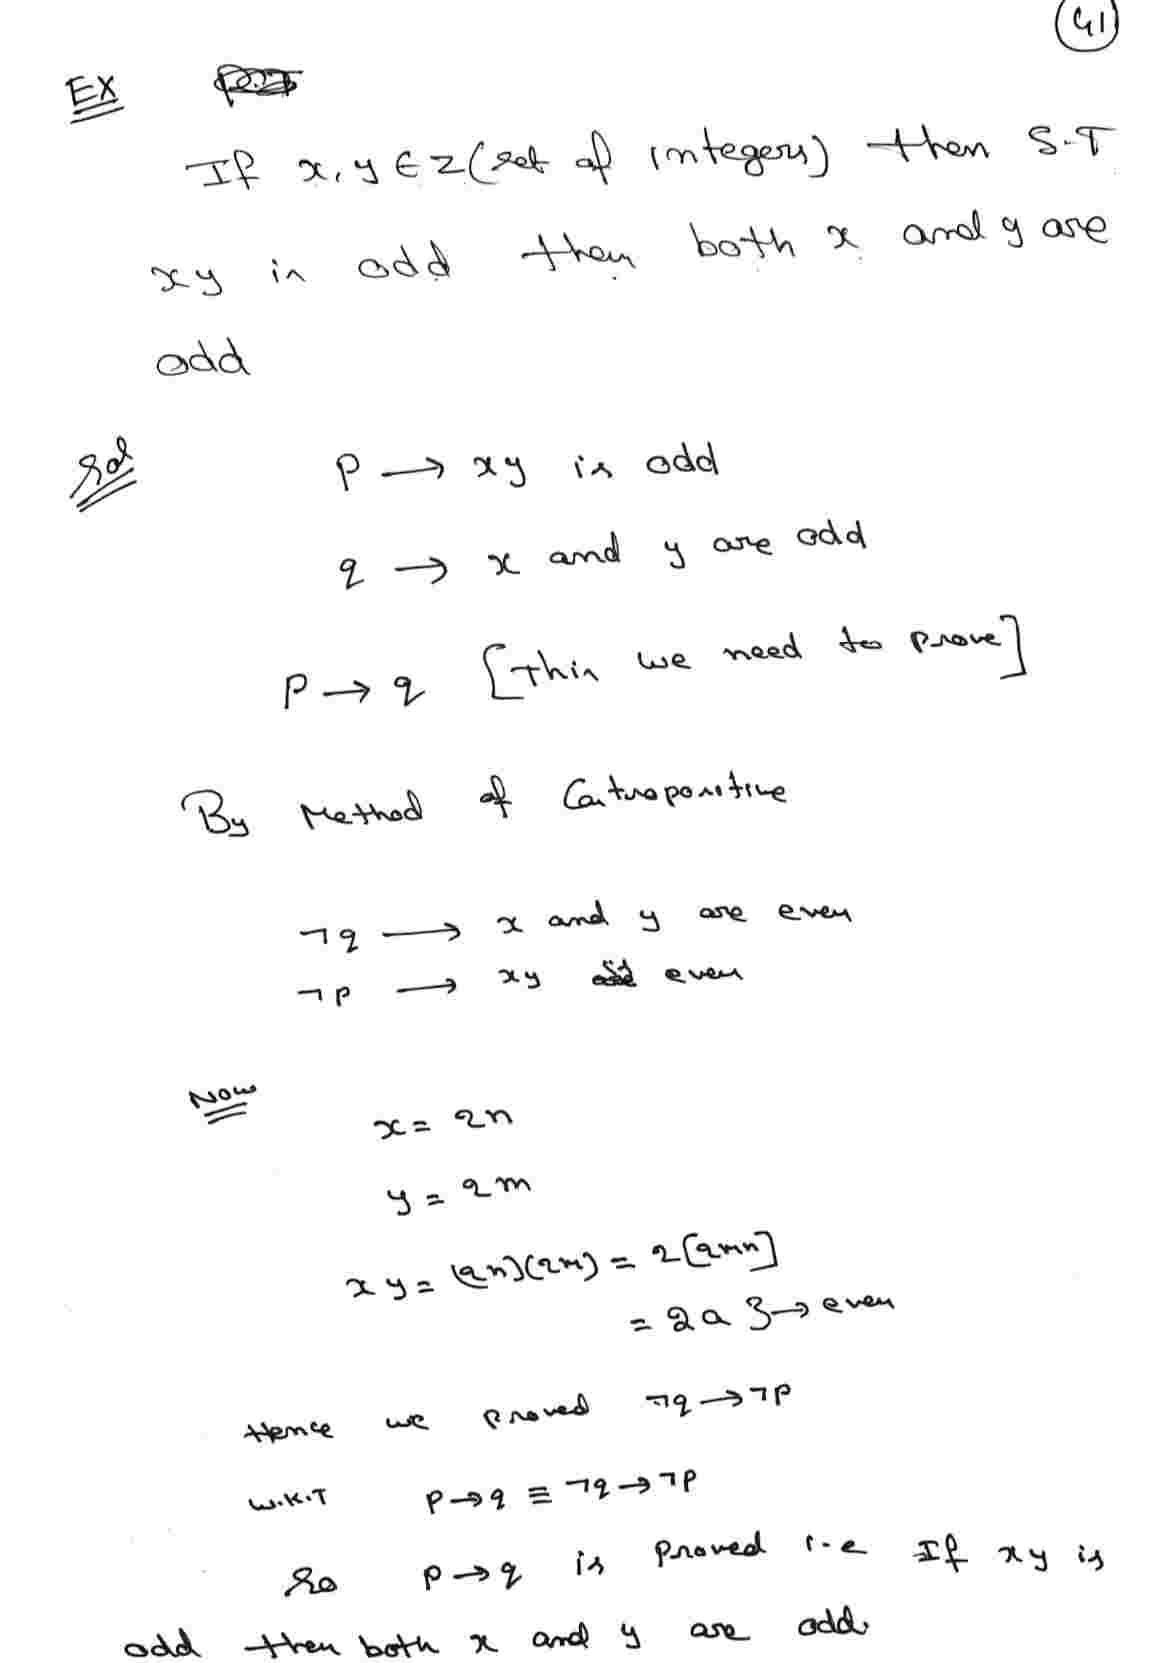 41
Ex
If x, y ∈ Z (set of integers) then S.T
xy is odd then both x and y are
odd
Sol
P → xy is odd
q → x and y are odd
P → q [This we need to prove]
By Method of Contrapositive
¬q → x and y are even
¬p → xy even
Now
x = 2n
y = 2m
xy = (2n)(2m) = 2[2mn]
= 2a } → even
Hence we proved ¬q → ¬p
W.K.T P → q ≡ ¬q → ¬p
So P → q is proved i.e If xy is
odd then both x and y are odd.